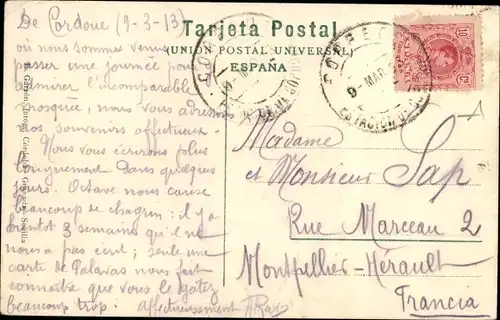 De Cordoue (9-3-13)
où nous sommes venus
passer une journée pour
admirer l'incomparable
mosquée, nous vous adressons
nos souvenirs affectueux.
Nous vous écrirons plus
longuement dans quelques
jours. Octave nous cause
beaucoup de chagrin: il y a
bientôt 3 semaines qu'il ne
nous a pas écrit; seule une
carte de Palavas nous fait
connaître que vous le gâtez
beaucoup trop. Affectueusement
Tarjeta Postal
(UNIÓN POSTAL UNIVERSAL)
ESPAÑA
CORREOS
9-MAR
ESTACIÓN
Madame
et Monsieur Sap
Rue Marceau 2
Montpellier-Hérault
Francia